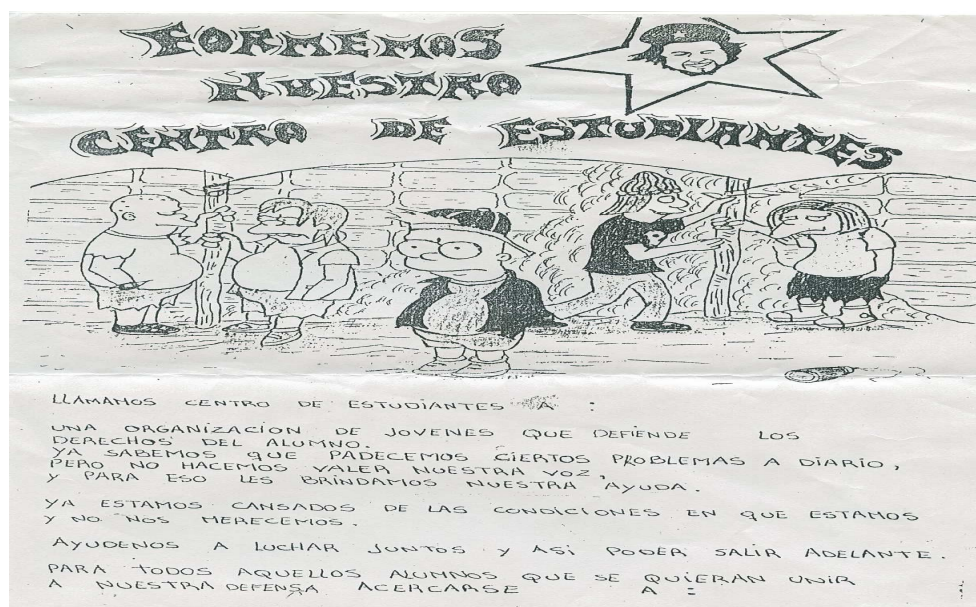 FORMEMOS
NUESTRO
CENTRO DE ESTUDIANTES
LLAMAMOS CENTRO DE ESTUDIANTES A :
UNA ORGANIZACION DE JOVENES QUE DEFIENDE LOS
DERECHOS DEL ALUMNO.
YA SABEMOS QUE PADECEMOS CIERTOS PROBLEMAS A DIARIO,
PERO NO HACEMOS VALER NUESTRA VOZ,
Y PARA ESO LES BRINDAMOS NUESTRA AYUDA.
YA ESTAMOS CANSADOS DE LAS CONDICIONES EN QUE ESTAMOS
Y NO NOS MERECEMOS.
AYUDENOS A LUCHAR JUNTOS Y ASI PODER SALIR ADELANTE.
PARA TODOS AQUELLOS ALUMNOS QUE SE QUIERAN UNIR
A NUESTRA DEFENSA ACERCARSE A :